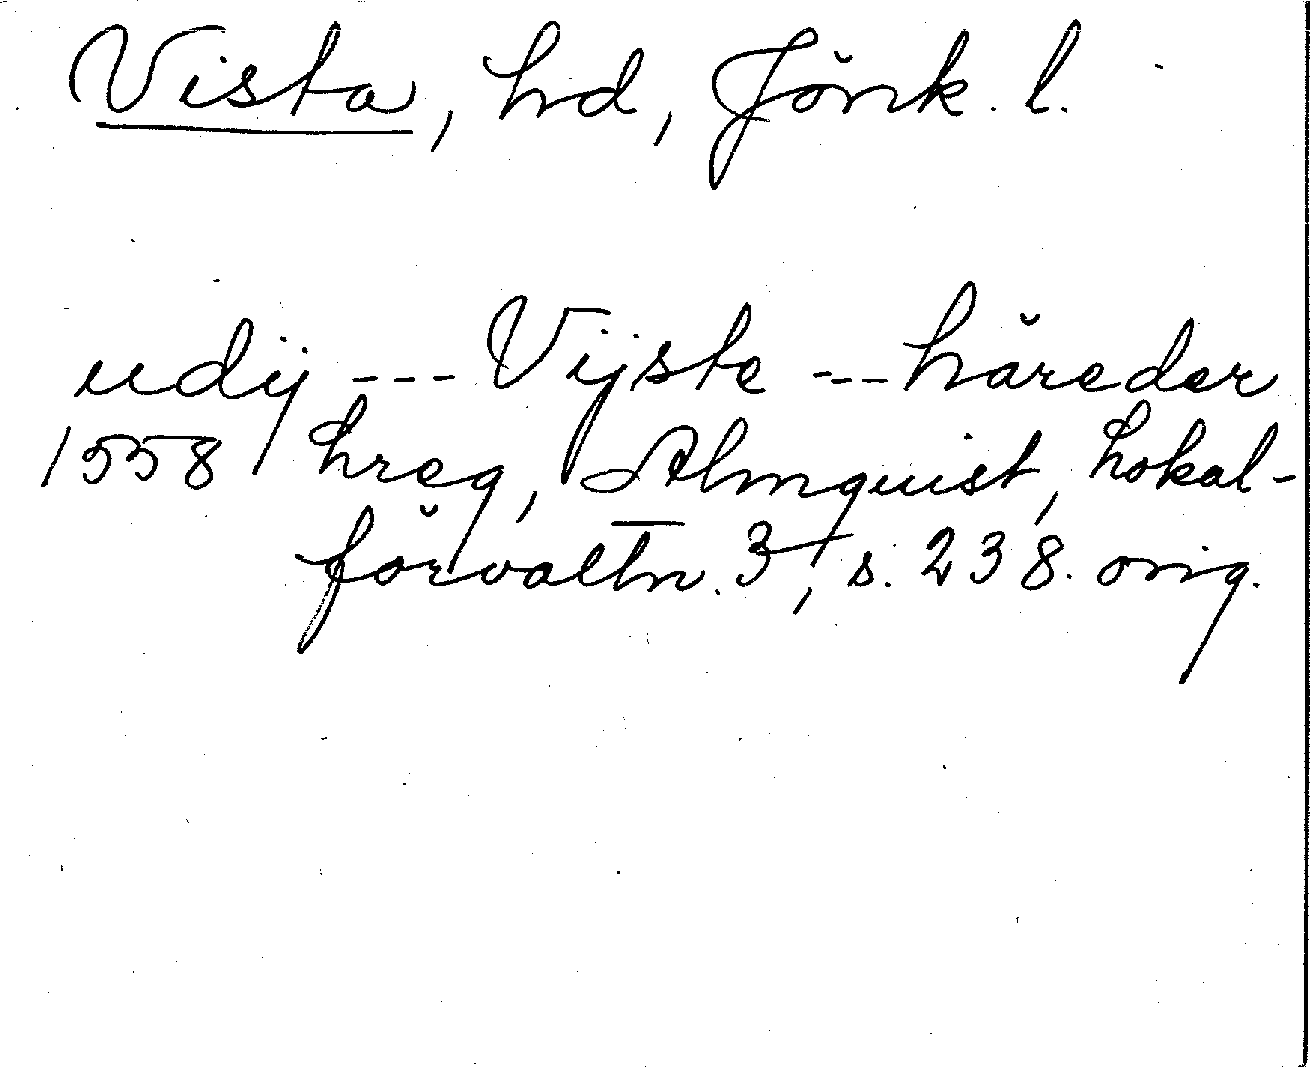 Vista, hd, Jönk. l.
udij --- Vijste --- häreder
1558 hreg, Almquist, Lokal-
förvaltn. 3, s. 238. orig.